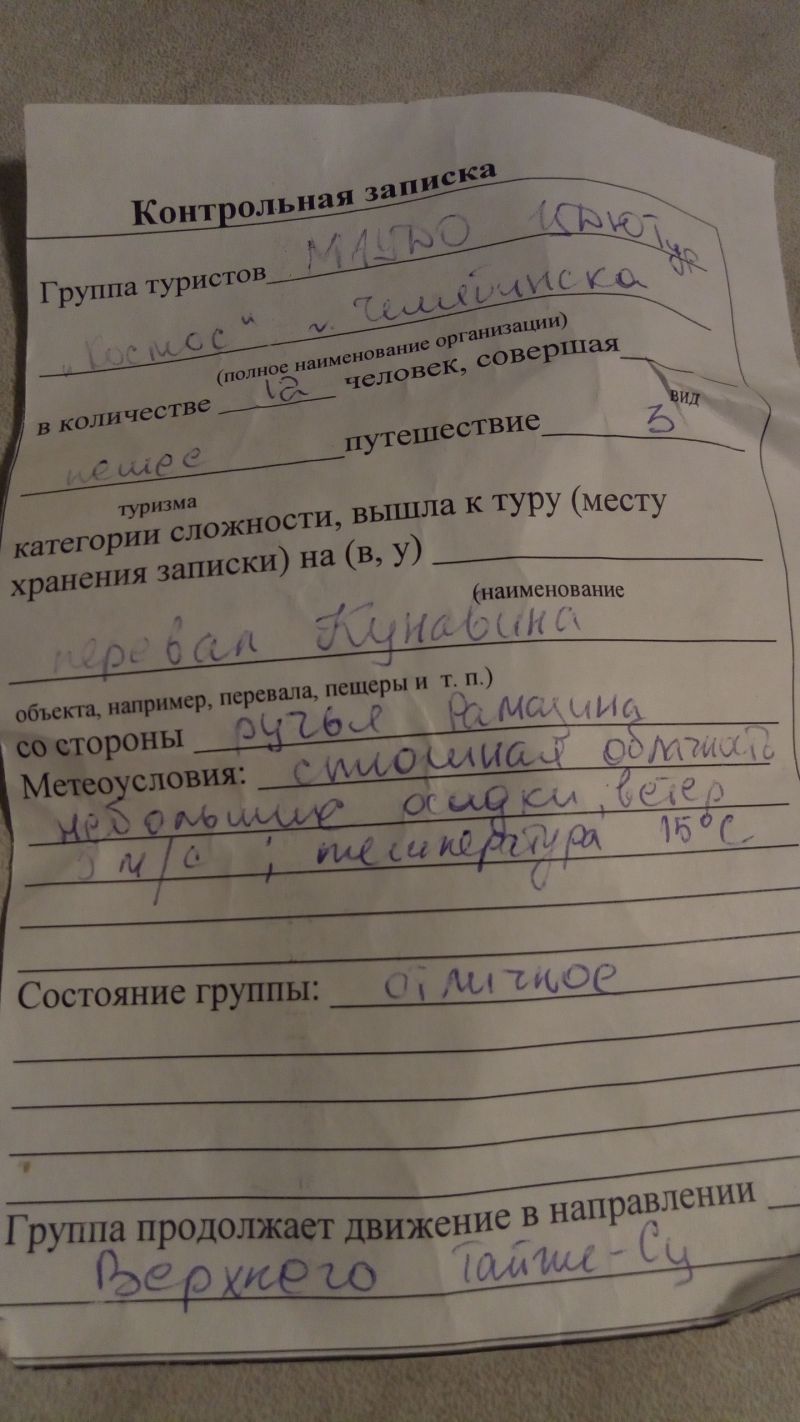 Контрольная записка
Группа туристов МАУДО ЦДЮТур
"Космос" г. Челябинска
(полное наименование организации)
в количестве 12 человек, совершая
вид
пешее путешествие 3
туризма
категории сложности, вышла к туру (месту
хранения записки) на (в, у)
(наименование
перевал Кунавина
объекта, например, перевала, пещеры и т. п.)
со стороны ручья Рамазина
Метеоусловия: сплошная облачность
небольшие осадки, ветер
м/с ; температура 15°C
Состояние группы: отличное
Группа продолжает движение в направлении
Верхнего Тайже-Су